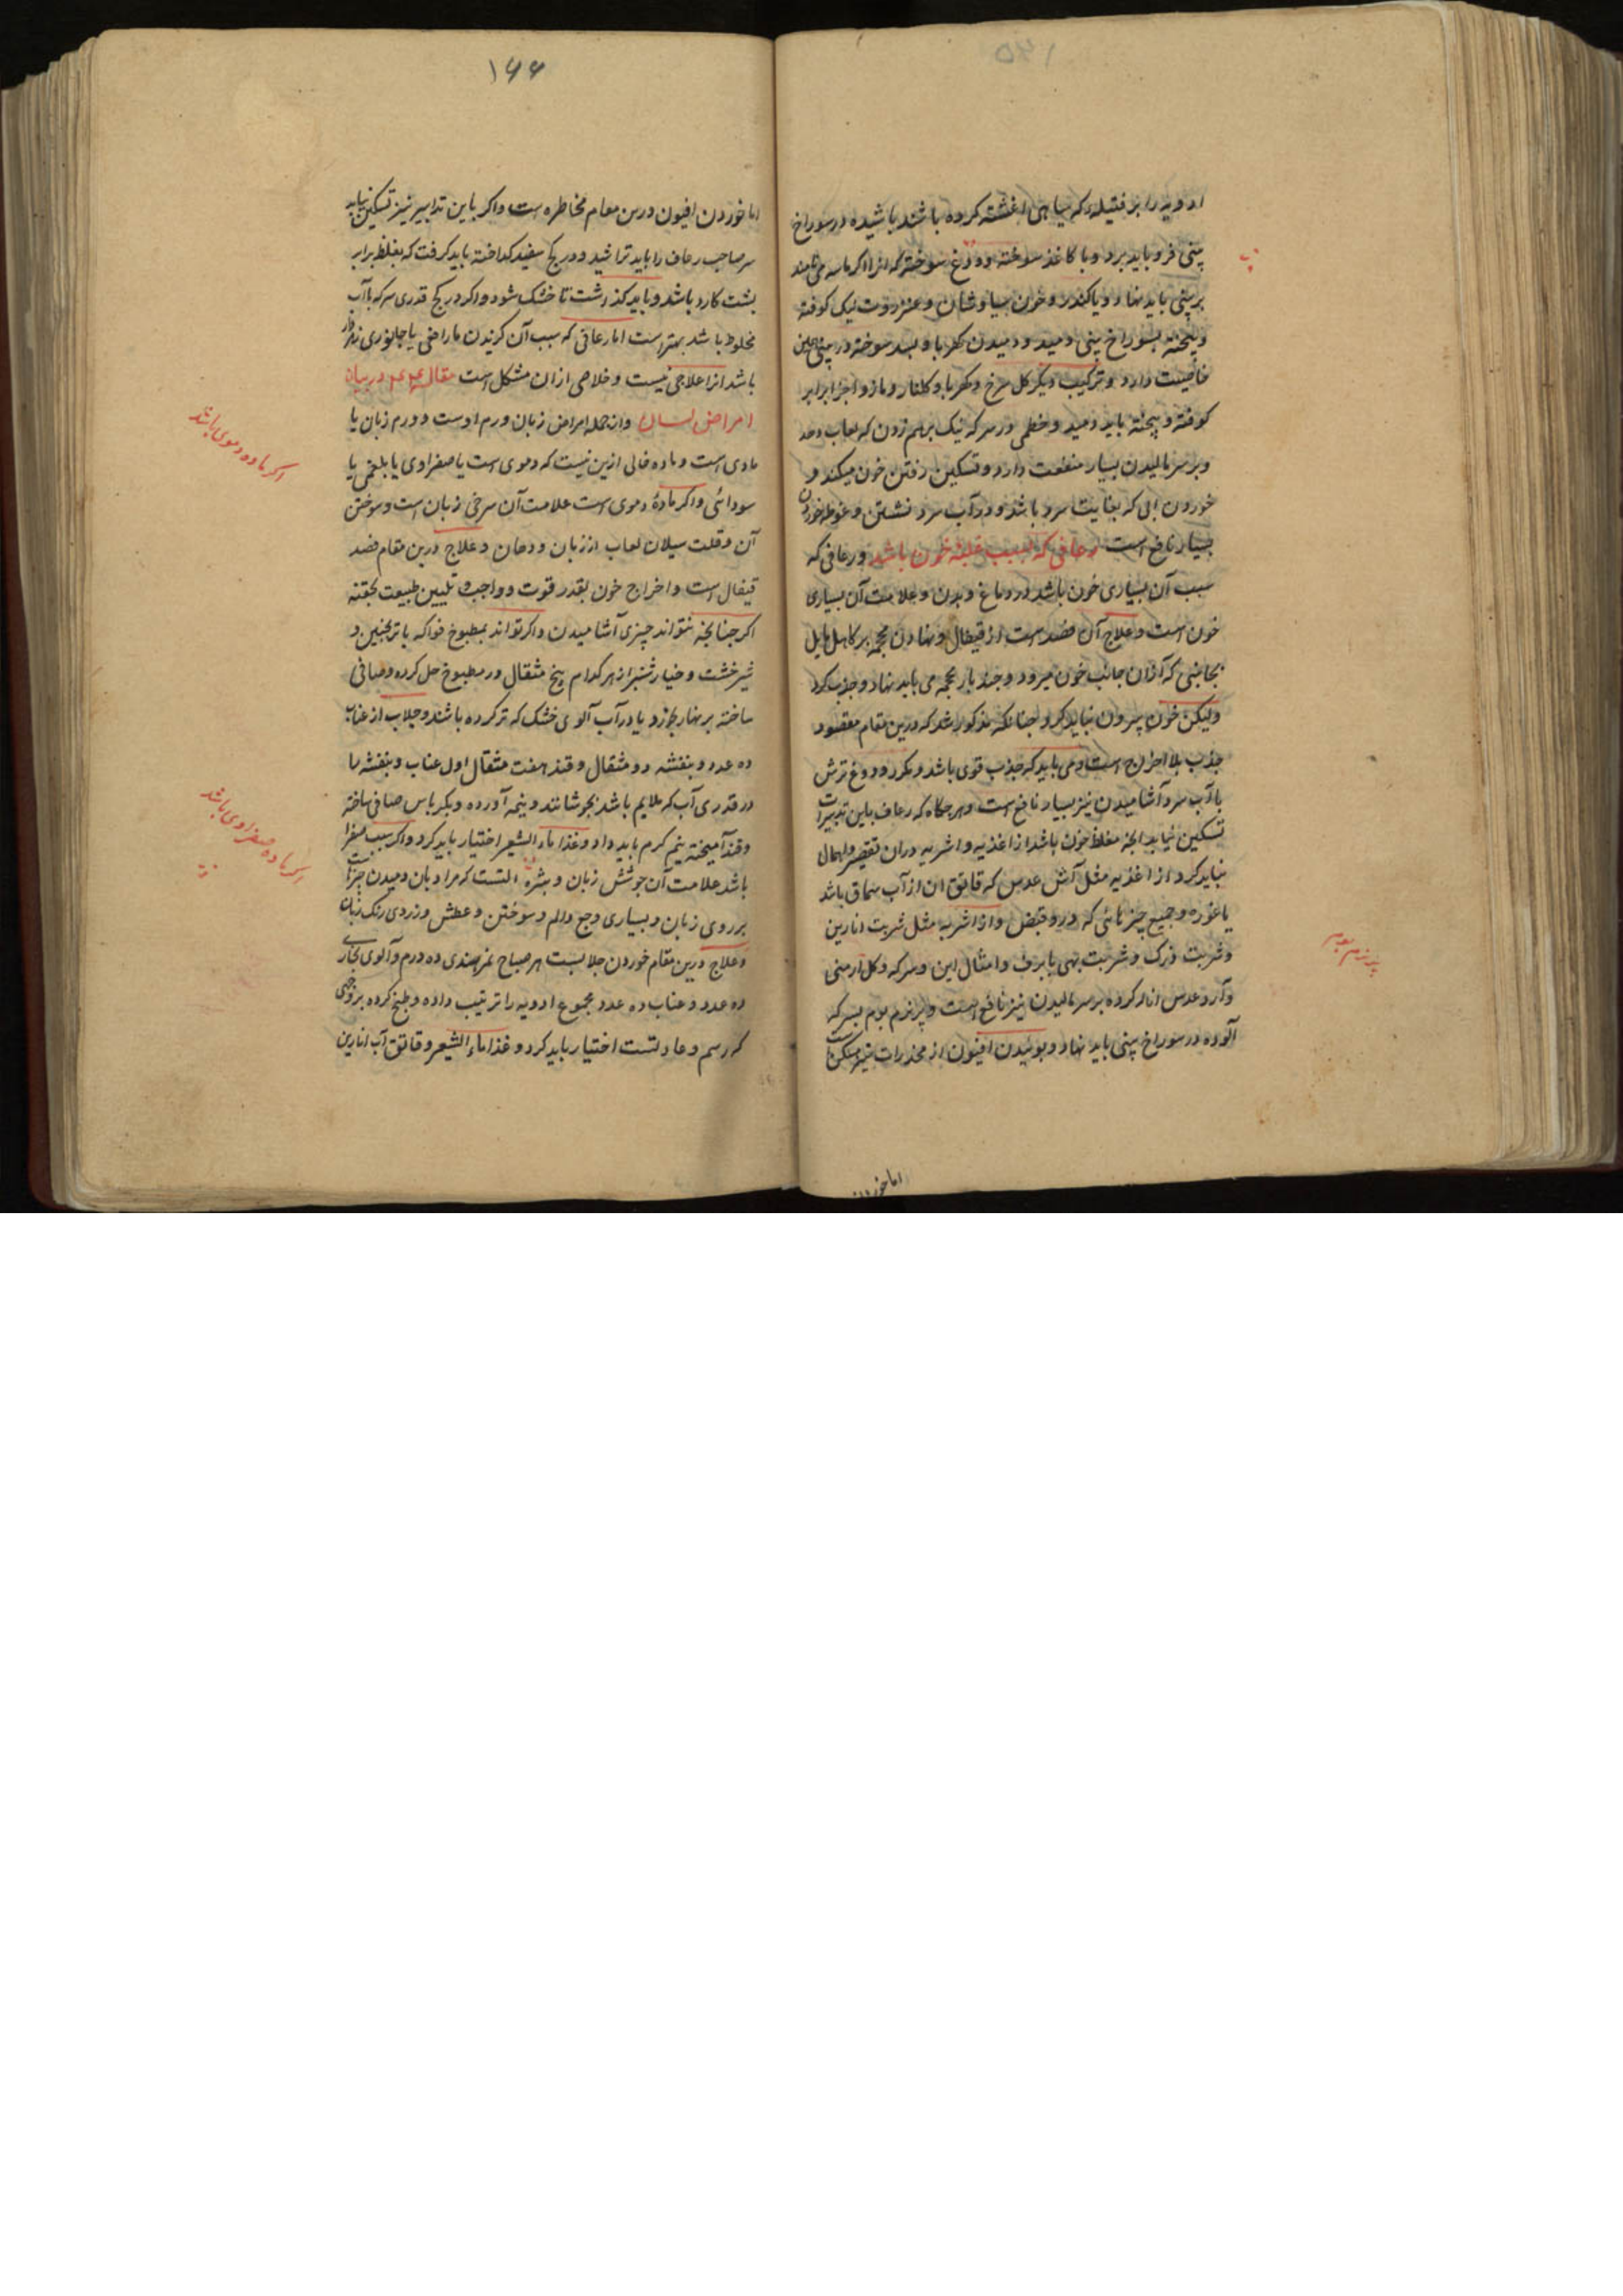 ادویه را بر فتیله که بسیاهی اغشته کرده باشند پاشیده در سوراخ
بینی فرو باید برد و با کاغذ سوخته و وزغ سوخته که انرا می نامند
بر بینی باید نهاد و یا کندر و خون سیاوشان و عنزروت نیک کوفته
و پیخته بسوراخ بینی دمید و دمیدن کهربا و بسد سوخته در بینی همین
خاصیت دارد و ترکیب دیکر کل سرخ و کهربا و کلنار و مازو اجزا برابر
کوفته و پیخته باید دمید و خطمی در سرکه نیک برهم زدن که لعاب دهد
و بر سر مالیدن بسیار منفعت دارد و تسکین رفتن خون میکند و
خوردن ابی که بغایت سرد باشد و در آب سرد نشستن و غوطه خوردن
بسیار نافع است رعافی که بسبب غلبه خون باشد و رعافی که
سبب آن بسیاری خون باشد در دماغ و بدن و علامت آن بسیاری
خون است و علاج آن فصد است از قیفال و نهادن محجمه بر کاهل مایل
بجانبی که ازان جانب خون میرود و چند بار محجمه می باید نهاد و جذب کرد
ولیکن خون بیرون نباید کرد چنانکه مذکور شد که درین مقام مقصود
جذب بلا اخراج است و می باید که جذب قوی باشد و مکرر و دوغ ترش
با آب سرد آشامیدن نیز بسیار نافع است و هرچکاه که رعاف باین تدبیرات
تسکین نیابد انچه مغلظ خون باشد از اغذیه و اشربه دران تقصیر و اهمال
نباید کرد از اغذیه مثل آش عدس که قاتق ان از آب سماق باشد
یا غوره و جمیع چیزهائی که درو قبض و از اشربه مثل شربت انارین
و شربت زرک و شربت بهی با برف و امثال این و سرکه و کل ارمنی
و آرد عدس اناله کرده بر سر مالیدن نیز نافع است و پر نرم بوم بسرکه
آلوده در سوراخ بینی باید نهاد و بوئیدن افیون از مخدرات نیز مسکن است
پر نرم بوم
اما خوردن
۱۶۶
اما خوردن افیون درین مقام مخاطره است و اکر باین تدابیر نیز تسکین نیابد
سر صاحب رعاف را باید تراشید و در کچ سفید کداخته باید کرفت که بغلظ برابر
پشت کارد باشد و باید کذاشت تا خشک شود و اکر در کچ قدری سرکه با آب
مخلوط باشد بهتر است اما رعافی که سبب آن کزیدن مار افعی یا جانوری زهردار
باشد انرا علاجی نیست و خلاصی ازان مشکل است مقاله در بیان
امراض لسان و از جمله امراض زبان ورم اوست و ورم زبان یا
مادی است و ماده خالی ازین نیست که دموی است یا صفراوی یا بلغمی یا
سودائی و اکر مادۀ دموی است علامت آن سرخی زبان است و سوختن
آن و قلت سیلان لعاب از زبان و دهان و علاج درین مقام فصد
قیفال است و اخراج خون بقدر قوت و واجب تلیین طبیعت بحقنه
اکر چنانچه نتواند چیزی آشامیدن و اکر تواند بمطبوخ فواکه با ترنجبین و
شیرخشت و خیارشنبر از هر کدام پنج مثقال در مطبوخ حل کرده و صافی
ساخته بر نهار بکارد یا در آب آلوی خشک که تر کرده باشند و جلاب از عناب
ده عدد و بنفشه دو مثقال و قند هفت مثقال اول عناب و بنفشه را
در قدری آب که ملایم باشد بجوشانند و بنیمه آورده و بکرباس صافی ساخته
و قند آمیخته نیم کرم باید داد و غذا ماء الشعیر اختیار باید کرد و اکر سبب صفرا
باشد علامت آن جوشش زبان و بثره انست که مراد بان دمیدن جزات
بر روی زبان و بسیاری وجع و الم و سوختن و عطش و زردی رنک زبان
و علاج درین مقام خوردن جلابست هر صباح تمر هندی ده درم و آلوی بخاری
ده عدد و عناب ده عدد مجموع ادویه را ترتیب داده و طبخ کرده بر وجهی
که رسم و عادتست اختیار باید کرد و غذا ماء الشعیر و قاتق آب انارین
اکر ماده دموی باشد
اکر ماده صفراوی باشد